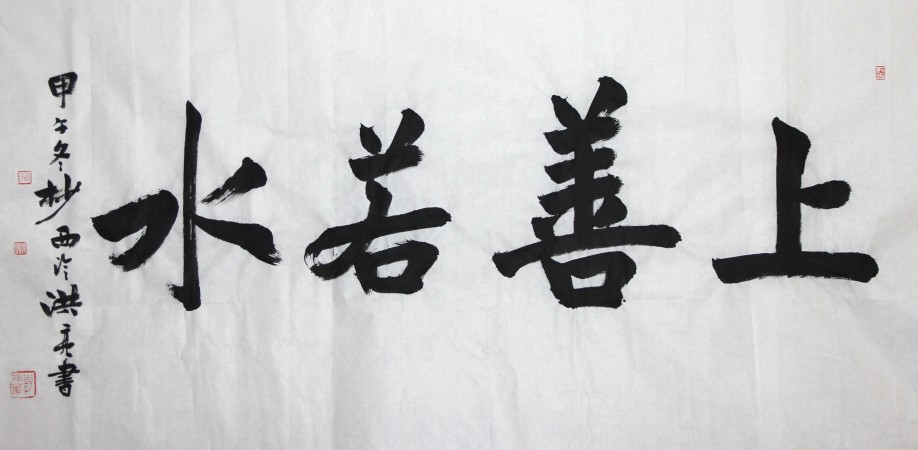 上善若水
甲午冬杪西泠洪亮書